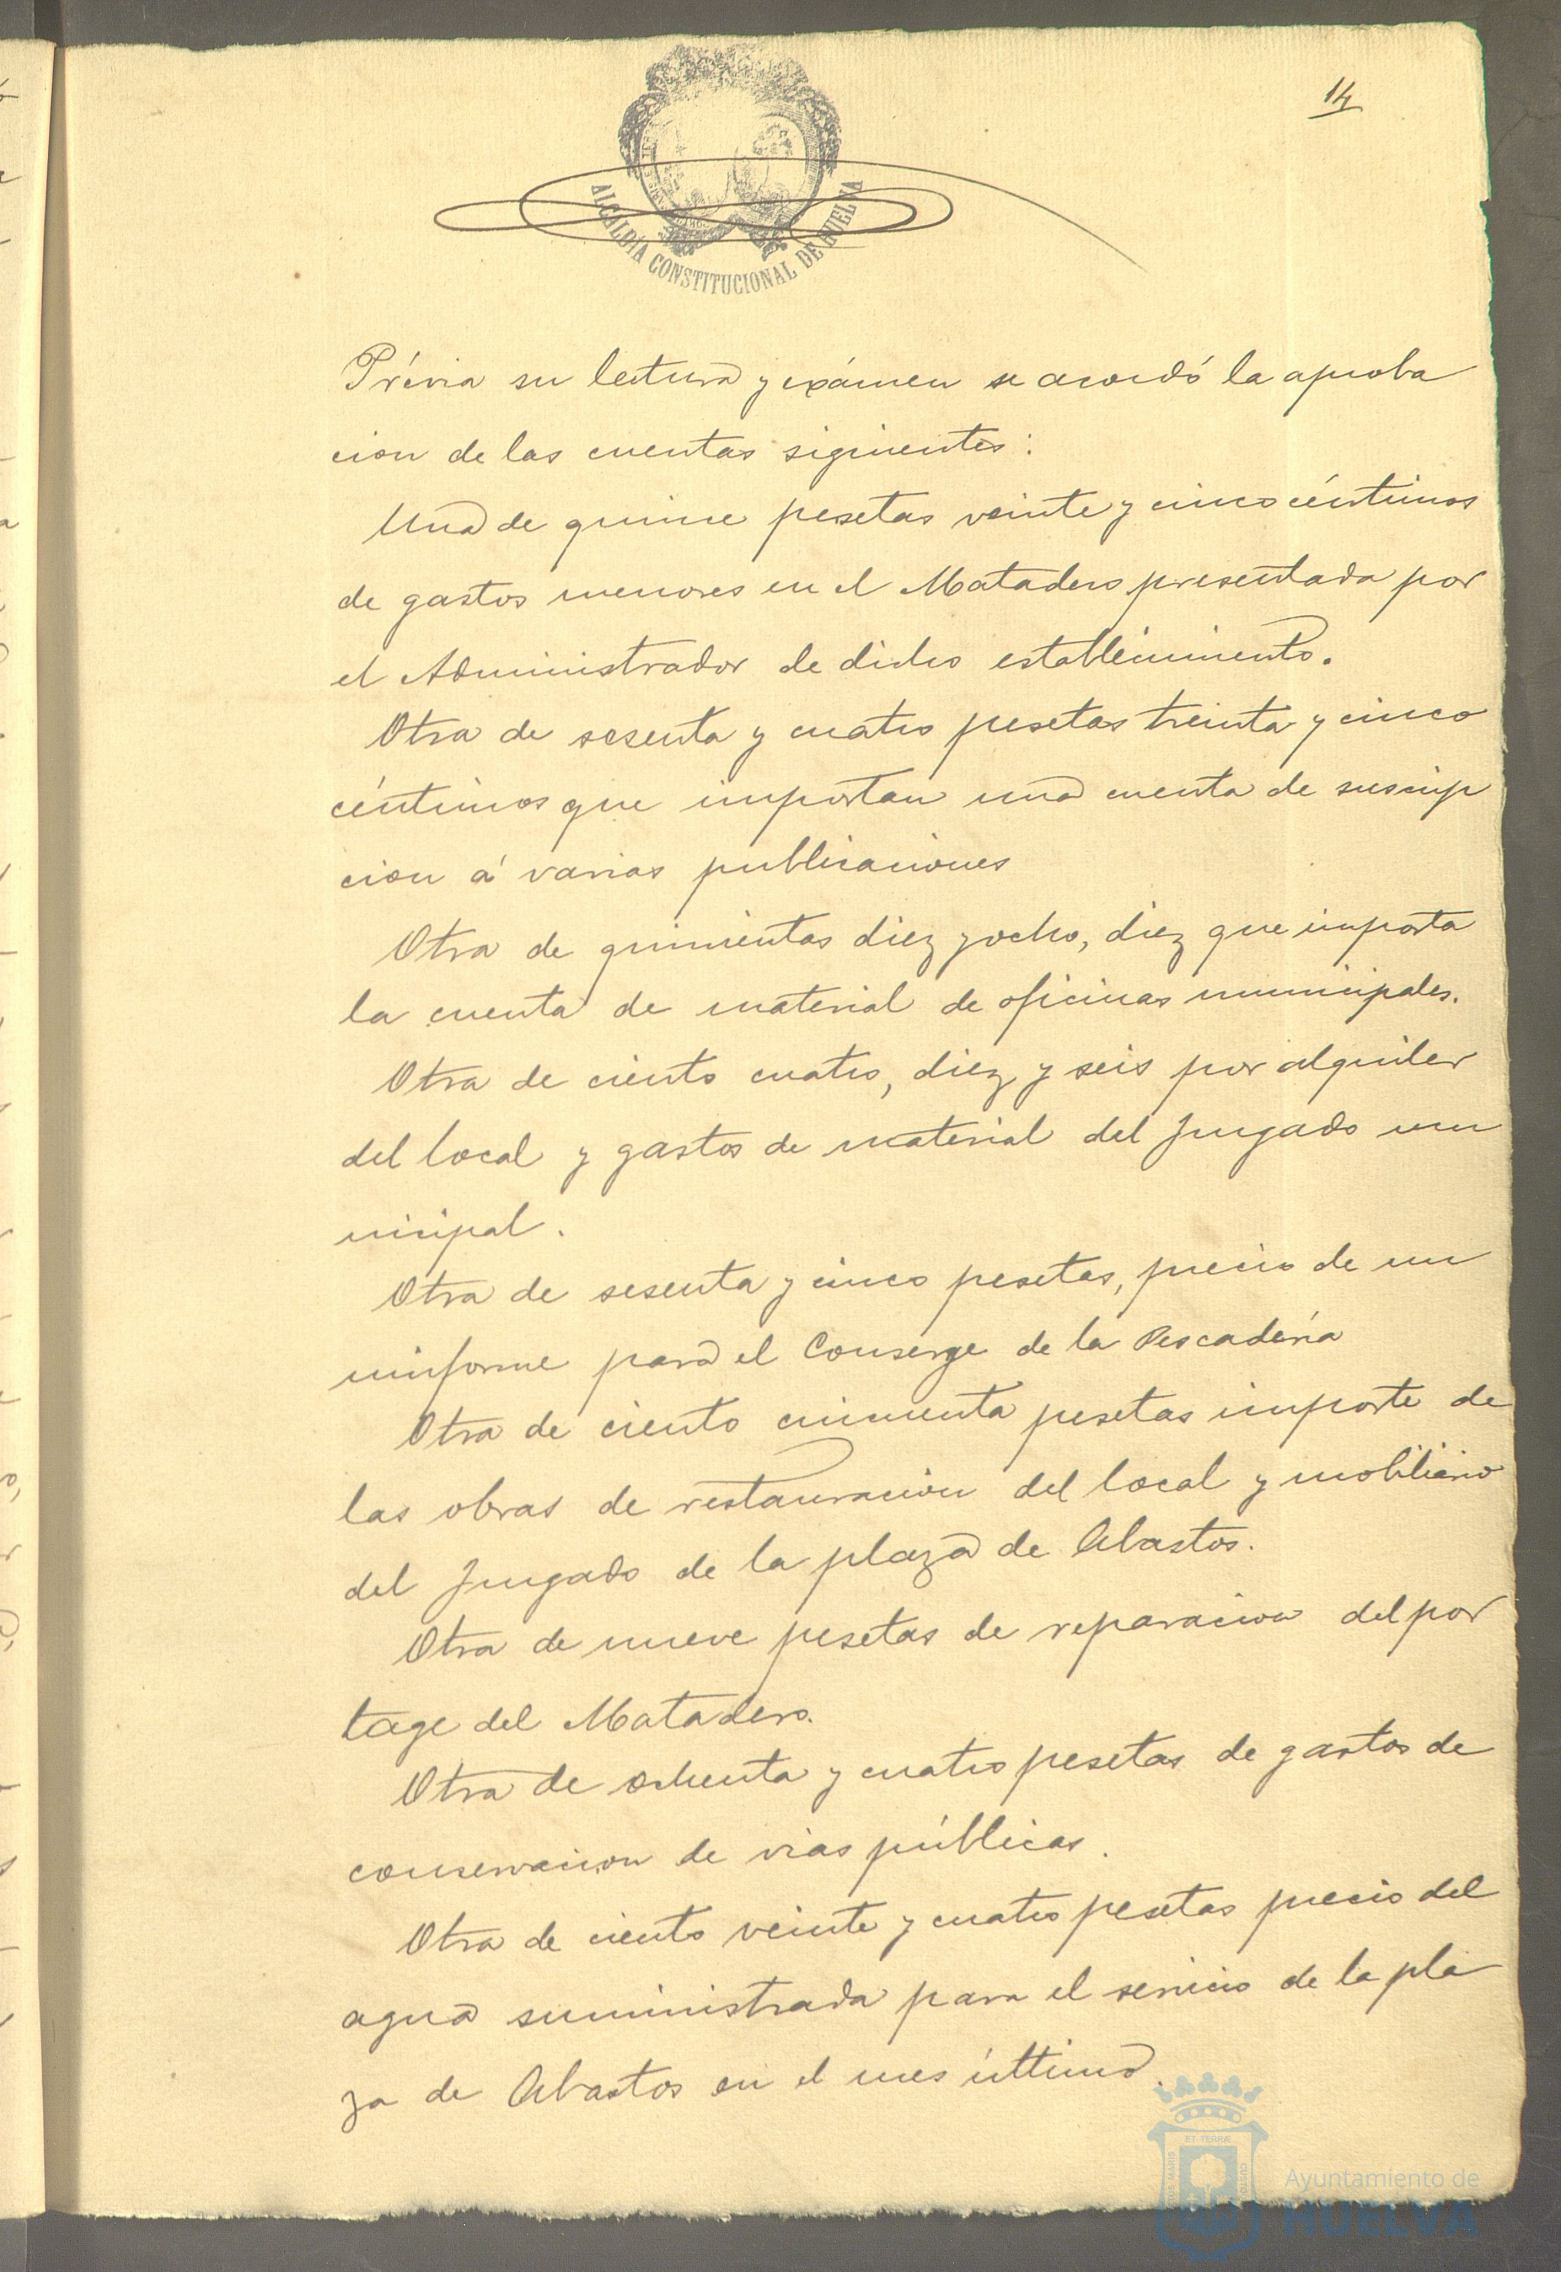 14
ALCALDÍA CONSTITUCIONAL DE HUELVA
Prévia su lectura y exámen se acordó la aproba
cion de las cuentas siguientes:
Una de quince pesetas veinte y cinco céntimos
de gastos menores en el Matadero presentada por
el Administrador de dicho establecimiento.
Otra de sesenta y cuatro pesetas treinta y cinco
céntimos que importan una cuenta de suscrip
cion á varias publicaciones
Otra de quinientas diez y ocho, diez que importa
la cuenta de material de oficinas municipales.
Otra de ciento cuatro, diez y seis por alquiler
del local y gastos de material del Juzgado mu
nicipal.
Otra de sesenta y cinco pesetas, precio de un
uniforme para el Conserge de la Pescadería
Otra de ciento cincuenta pesetas importe de
las obras de restauracion del local y mobiliario
del Juzgado de la plaza de Abastos.
Otra de nueve pesetas de reparacion del por
tage del Matadero.
Otra de ochenta y cuatro pesetas de gastos de
conservacion de vias públicas.
Otra de ciento veinte y cuatro pesetas precio del
agua suministrada para el servicio de la pla
za de Abastos en el mes último.
ET TERRÆ
Ayuntamiento de
HUELVA